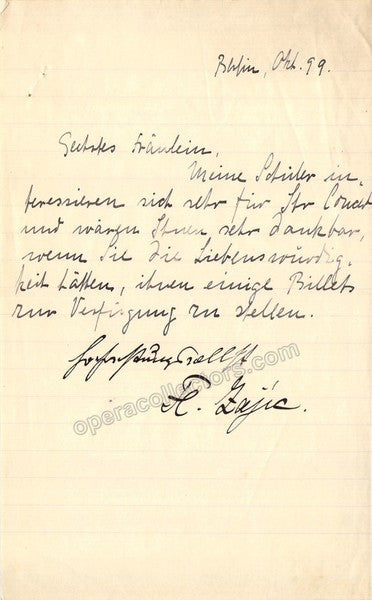 Berlin, Okt. 99.
Geehrtes Fräulein,
Meine Schüler in-
teressieren sich sehr für Ihr Concert
und wären Ihnen sehr dankbar,
wenn Sie die Liebenswürdig-
keit hätten, ihnen einige Billets
zur Verfügung zu stellen.
Hochachtungsvollst
Fl. Zajic.
operacollectors.com